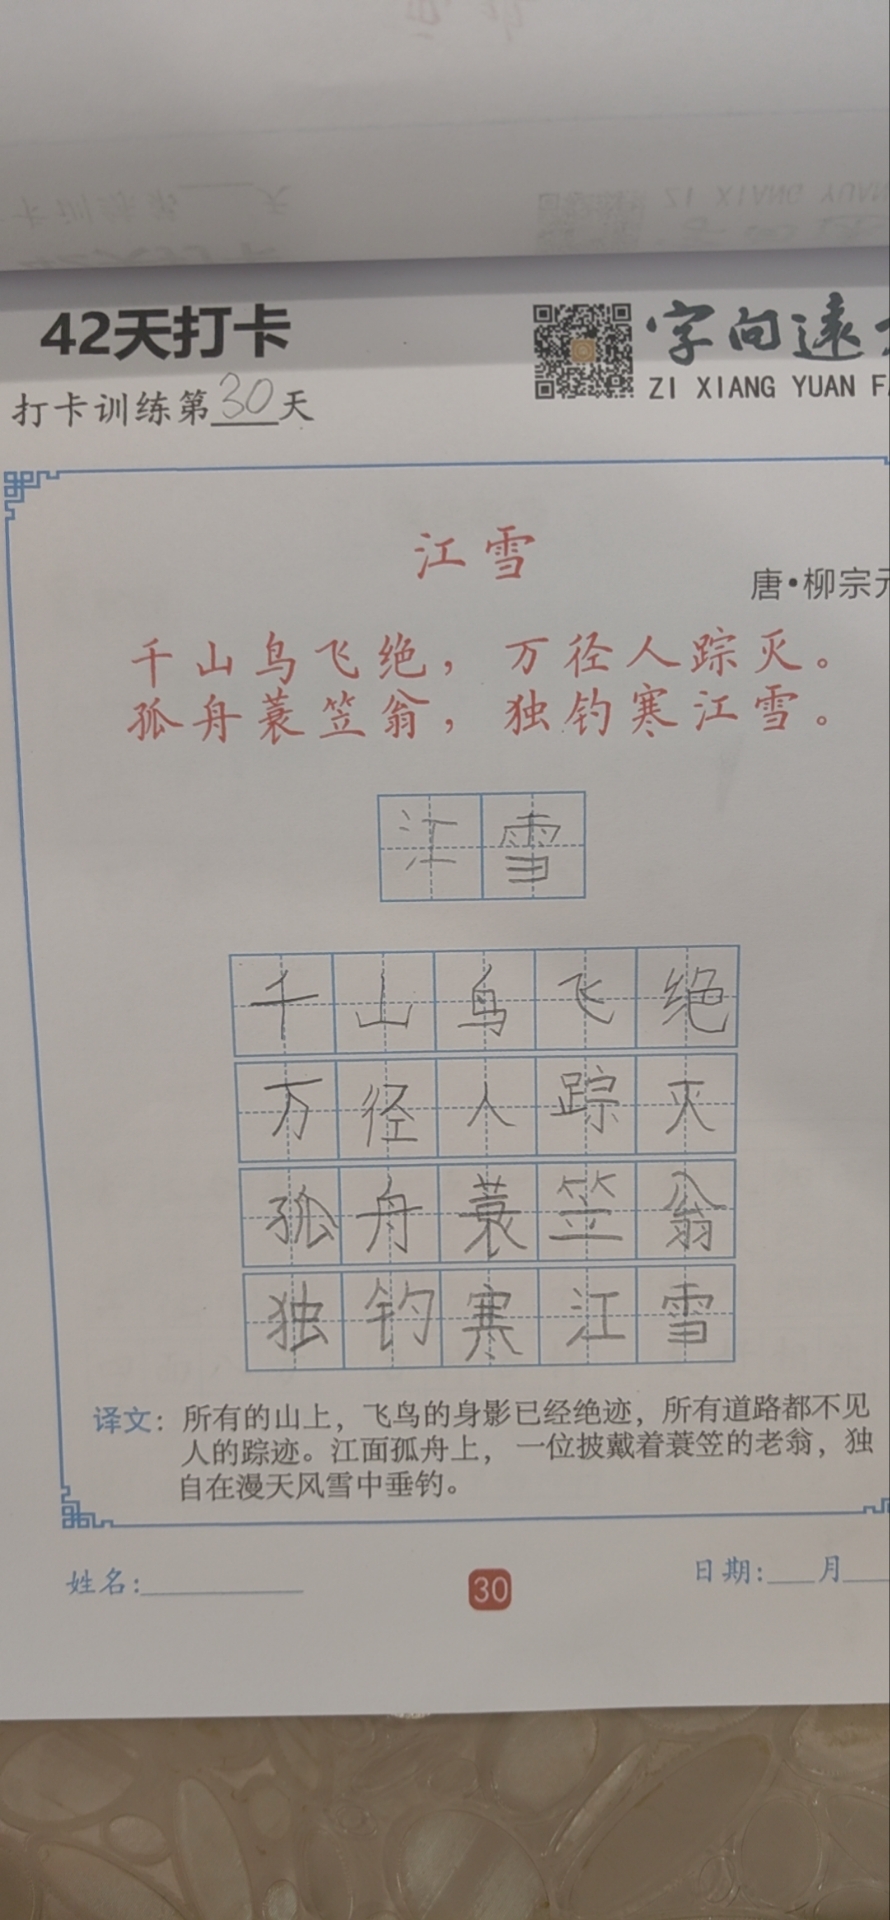 42天打卡
字向遠
ZI XIANG YUAN
打卡训练第30天
江雪
唐·柳宗元
千山鸟飞绝，万径人踪灭。
孤舟蓑笠翁，独钓寒江雪。
江雪
千山鸟飞绝
万径人踪灭
孤舟蓑笠翁
独钓寒江雪
译文：所有的山上，飞鸟的身影已经绝迹，所有道路都不见
人的踪迹。江面孤舟上，一位披戴着蓑笠的老翁，独
自在漫天风雪中垂钓。
姓名：
30
日期： 月